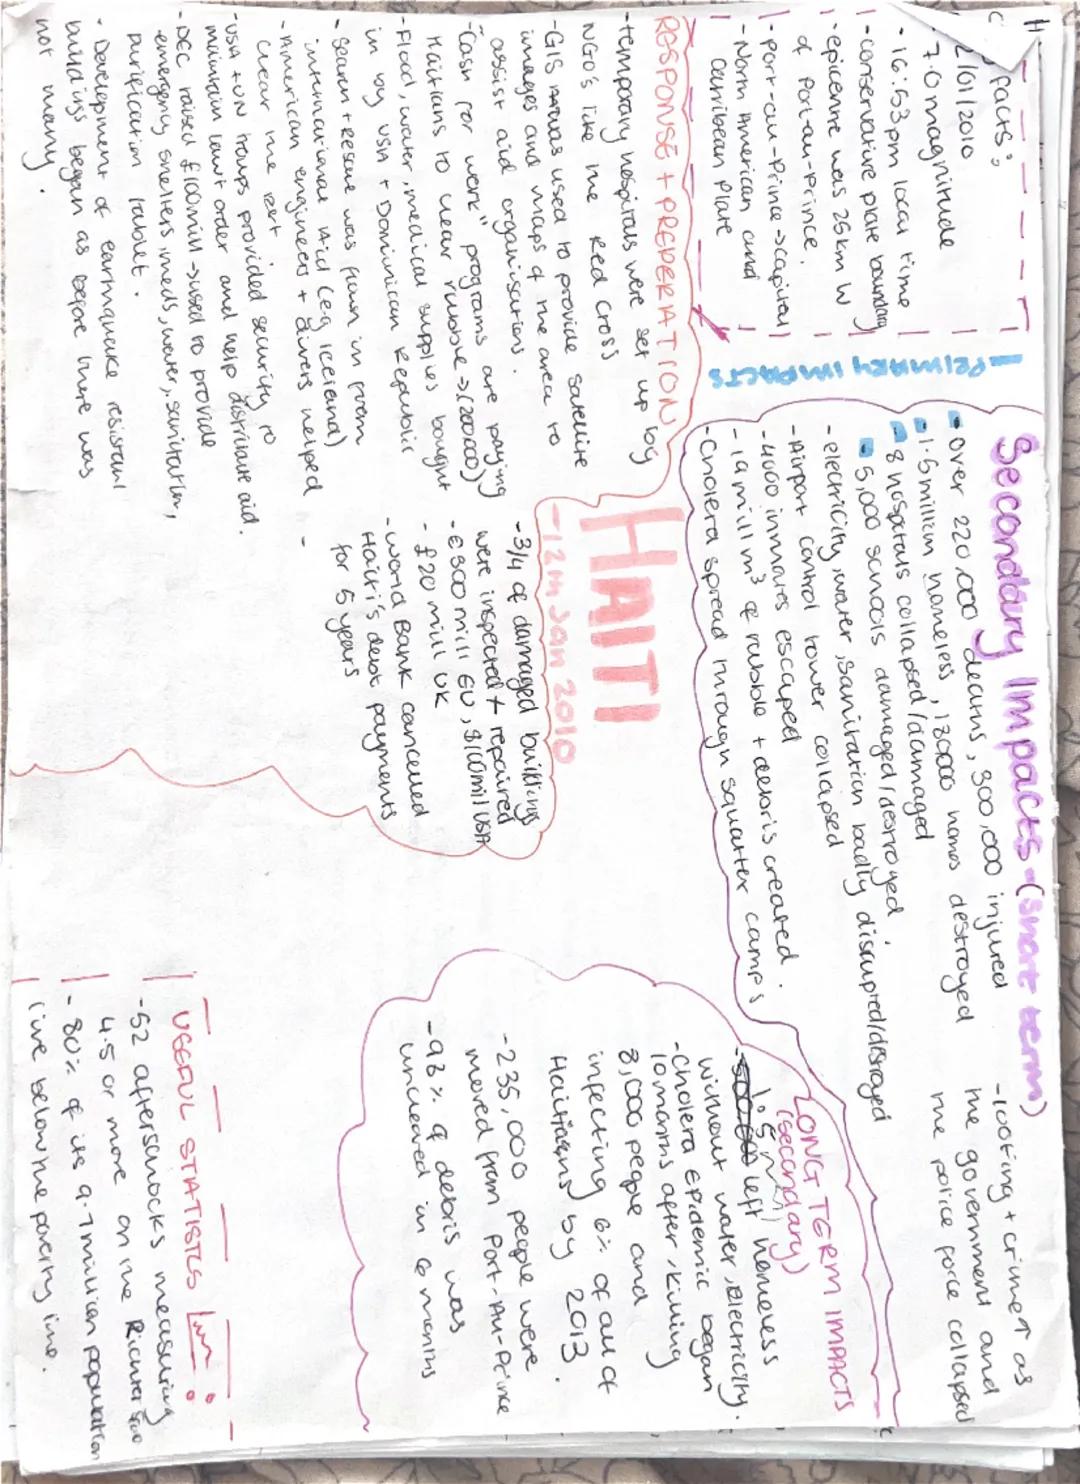 facts:
2/01/2010
- 7.0 magnitude
- 16:53pm local time
- conservative plate boundary
- epicentre was 25km W
of Port-au-Prince.
- Port-au-Prince → capital
- North American and
Carribean Plate
- PRIMARY IMPACTS
Secondary Impacts - (short term)
Over 220,000 deaths, 300,000 injured
1.5 million homeless, 180000 homes destroyed
8 hospitals collapsed/damaged
5,000 schools damaged/destroyed.
- electricity, water, sanitation badly disrupted/destroyed
- Airport control tower collapsed
- 4000 inmates escaped
- 19 mill m³ of rubble + debris created.
- Cholera spread through squatter camps
- looting + crime ↑ as
the government and
the police force collapsed
RESPONSE + PREPERIATION
- temporary hospitals were set up by
NGO's like the Red Cross
- GIS was used to provide satellite
images and maps of the area to
assist aid organisations.
- "Cash for work" programs are paying
Haitians to clear rubble → (200000)
- Flood, water, medical supplies bought
in by USA + Dominican Republic
- Search + rescue was flown in from
international Aid (e.g iceland)
- American engineers + divers helped
clear the port
- USA + UN troops provided security to
maintain law + order and help distribute aid.
- DEC raised £100mill → used to provide
emergency shelters, meds, water, sanitation,
purification tablet.
- Development of earthquake resistant
buildings began as before there was
not many.
HAITI
- 12th Jan 2010
- 3/4 of damaged buildings
were inspected + repaired
- €300 mill EU, $100mil USA
- £20 mill UK
- World Bank cancelled
Haiti's debt payments
for 5 years
-
LONG TERM IMPACTS
(secondary)
- 1.5 mill left homeless
without water, electricity.
- Cholera Epidemic began
10 months after, killing
8,000 people and
infecting 6% of all of
Haitians by 2013.
- 235,000 people were
moved from Port-Au-Prince
- 98% of debris was
uncleared in 6 months
USEFUL STATISTICS
- 52 aftershocks measuring
4.5 or more on the Richter
- 80% of its 9.7 million population
live below the poverty line.